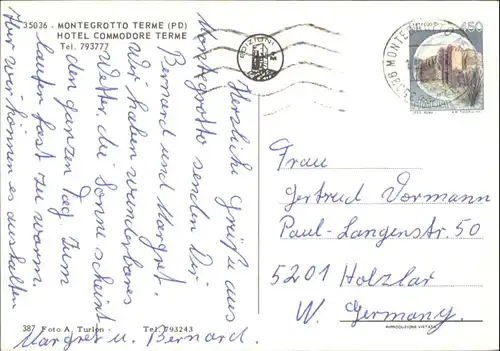 35036 - MONTEGROTTO TERME (PD)
HOTEL COMMODORE TERME
Tel. 793777
EDIZIONI
450
35036 MONTEGR
Herzliche Grüße aus
Montegrotto senden Dir
Bernard und Margret.
Wir haben wunderbares
Wetter, die Sonne scheint
den ganzen Tag. Zum
laufen fast zu warm.
Aber wir können es aushalten
Margret u. Bernard.
Frau
Gertrud Vormann
Paul-Langenstr. 50
5201 Holzlar
W. Germany.
387 Foto A. Turlon - Tel. 793243
RIPRODUZIONE VIETATA